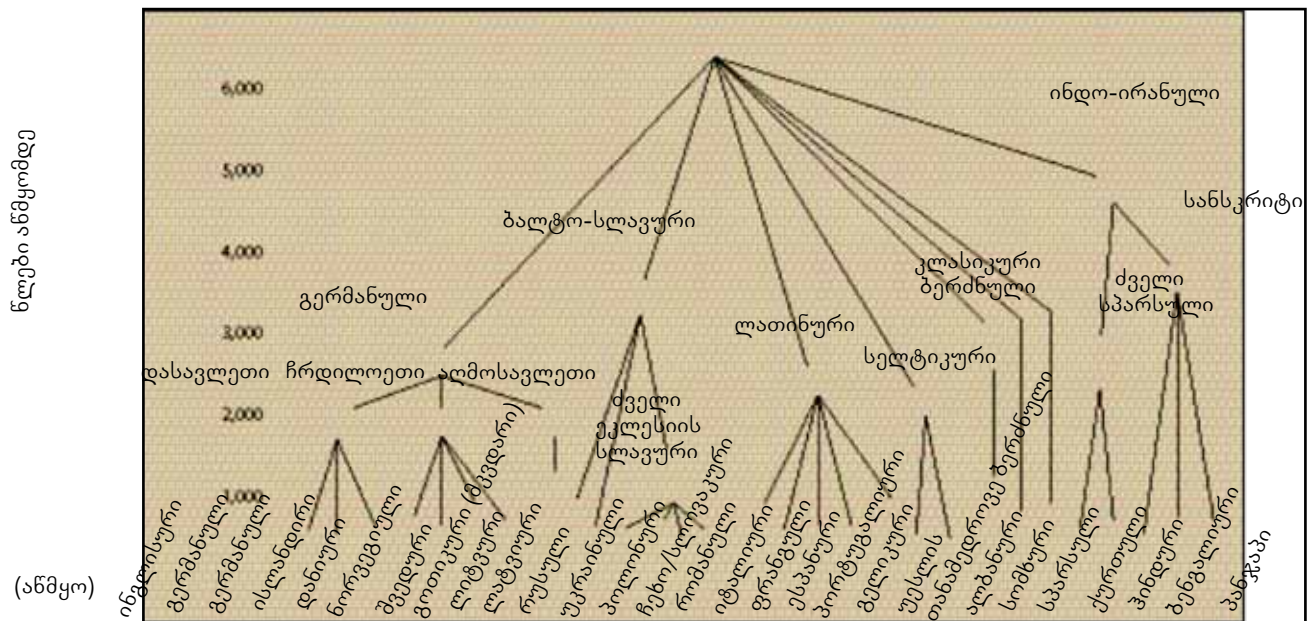 წლები აწმყომდე
6,000
ინდო-ირანული
5,000
სანსკრიტი
ბალტო-სლავური
4,000
კლასიკური
ბერძნული
ძველი
სპარსული
გერმანული
3,000
ლათინური
სელტიკური
დასავლეთი ჩრდილოეთი აღმოსავლეთი
2,000
ძველი
ეკლესიის
სლავური
1,000
(აწმყო)
ინგლისური
გერმანული
გერმანული
ისლანდირი
დანიური
ნორვეგიული
შვედური
გოთიკური (მკვდარი)
ლიტვური
ლატვიური
რუსული
უკრაინული
პოლონური
ჩეხო/სლოვაკური
რომანული
იტალიური
ფრანგული
ესპანური
პორტუგალიური
გელიკური
უესლის
თანამედროვე ბერძნული
ალბანური
სომხური
სპარსული
ქურთული
ჰინდური
ბენგალიური
პანჯაპი